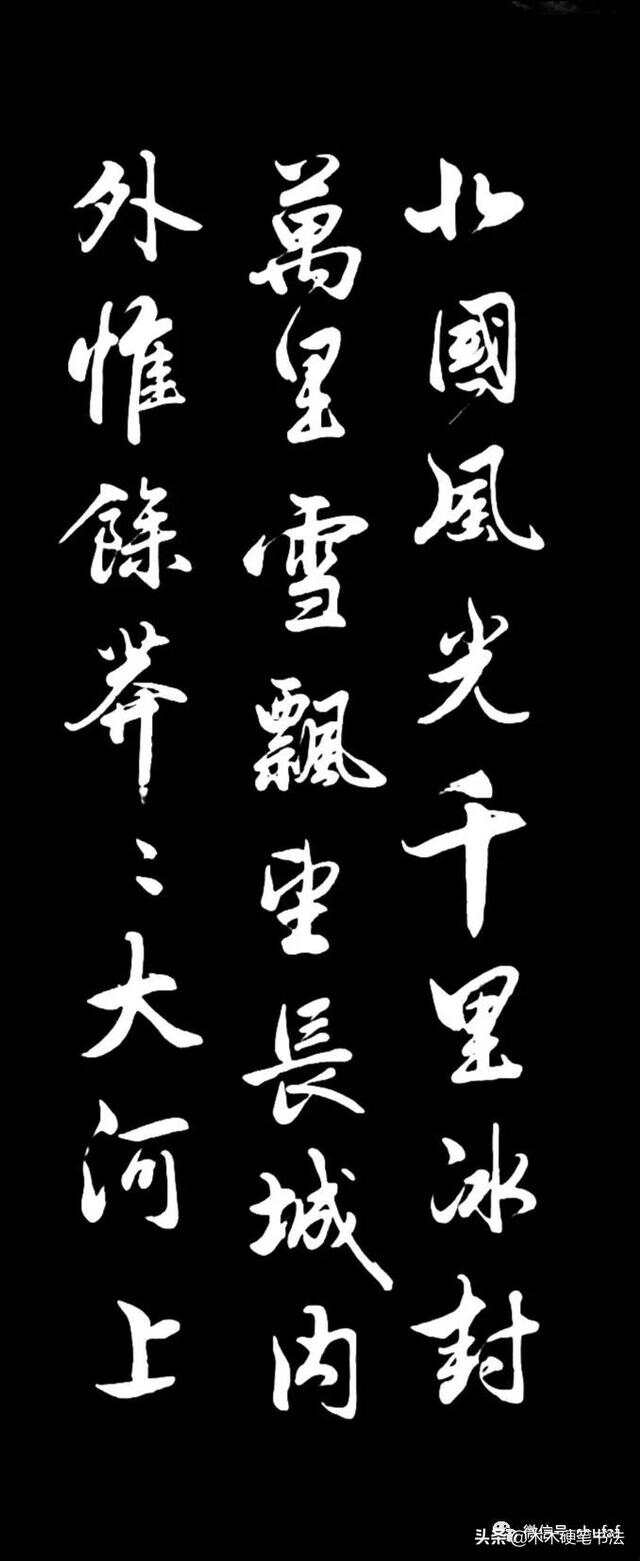 北國風光千里冰封
萬里雪飄望長城内
外惟餘莽〻大河上
头条@木木硬笔书法
微信号